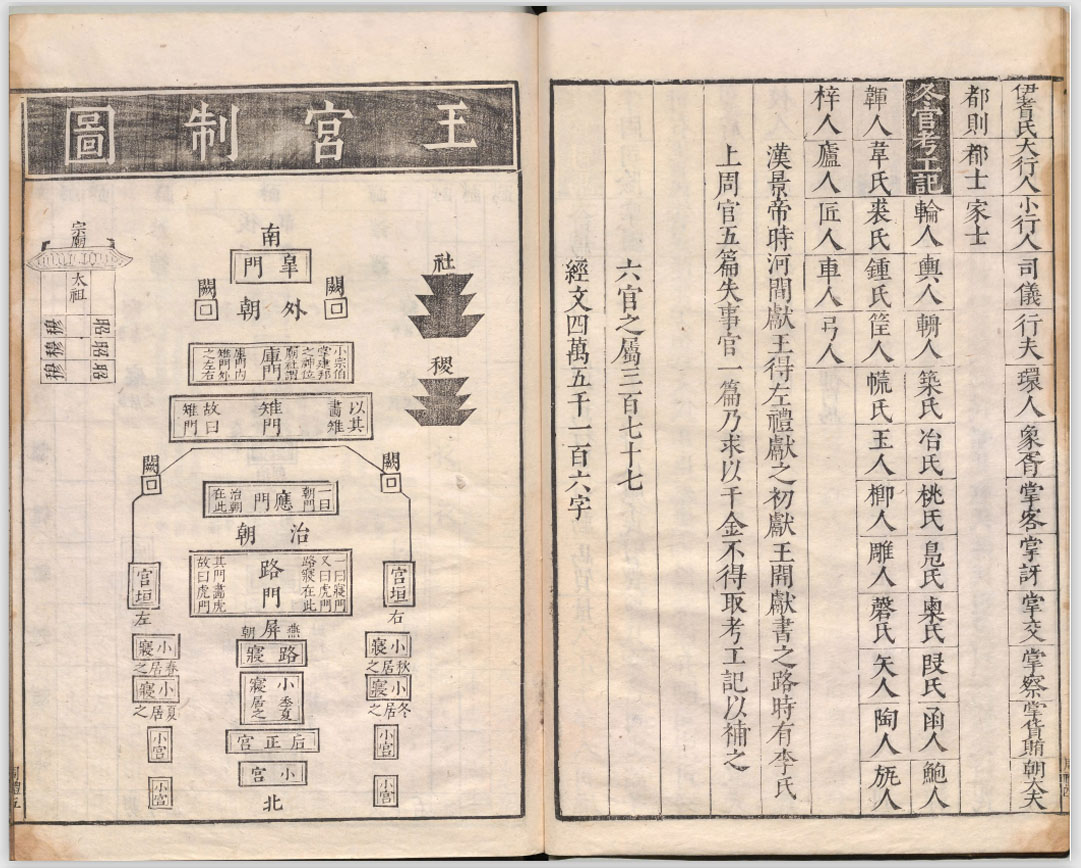 伊耆氏大行人小行人司儀行夫環人象胥掌客掌訝掌交掌察掌貨賄朝大夫
都則都士家士
冬官考工記輪人輿人輈人築氏冶氏桃氏鳧氏㮚氏段氏函人鮑人
韗人韋氏裘氏鍾氏筐人㡛氏玉人楖人雕人磬氏矢人陶人旊人
梓人廬人匠人車人弓人
漢景帝時河間獻王得左禮獻之初獻王開獻書之路時有李氏
上周官五篇失事官一篇乃求以千金不得取考工記以補之
六官之屬三百七十七
經文四萬五千一百六字
王宮制圖
南
皐門
闕
外朝
闕
社
稷
宗廟
太祖
昭昭昭
穆穆穆
小宗伯
掌建邦
之神位
庫門
庫門內
雉門外
之左右
以其
畫雉
雉門
故曰
雉門
闕
闕
一曰
朝門
應門
治朝
在此
治朝
一曰寢門
又曰虎門
路寢在此
路門
其門畫虎
故曰虎門
宮垣
右
宮垣
左
燕
屏
朝
路寢
小寢
秋居之
小寢
冬居之
小寢
春居之
小寢
夏居之
小寢
季夏
居之
后正宮
小宮
小宮
小宮
小宮
小宮
北